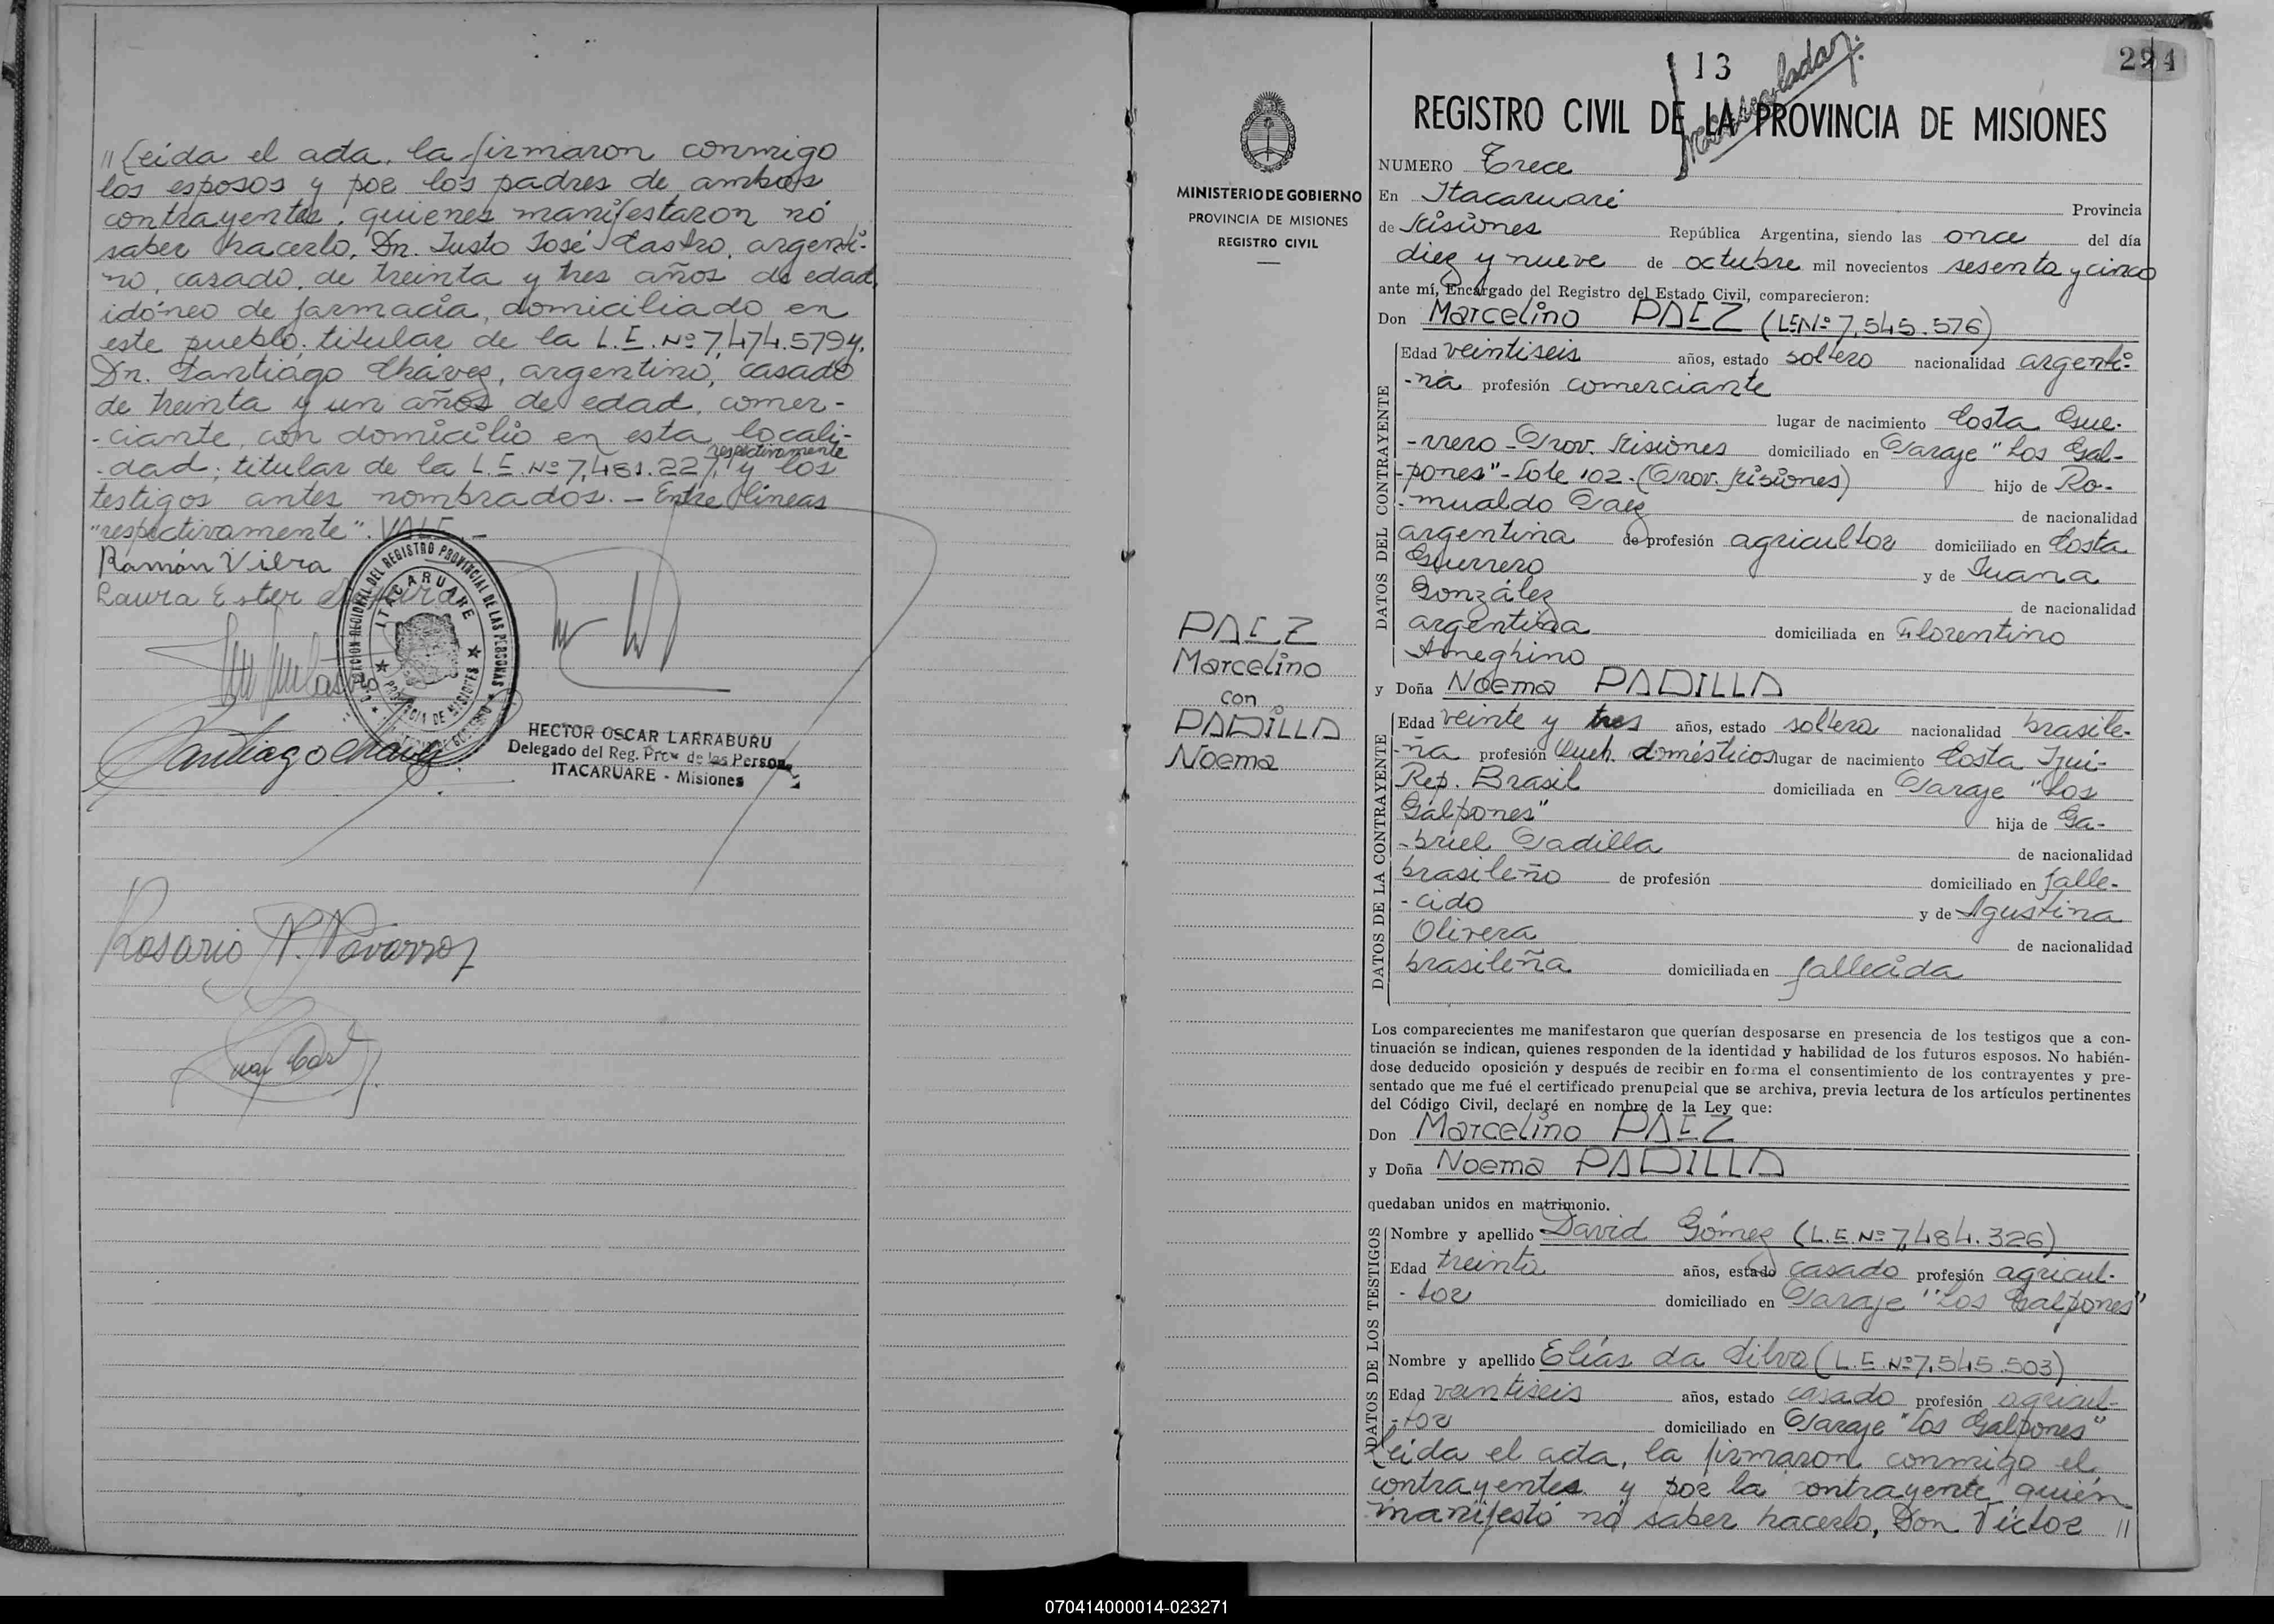 "Leida el acta, la firmaron conmigo
los esposos y por los padres de ambos
contrayentes, quienes manifestaron nó
saber hacerlo, Dn. Justo José Castro, argenti-
no, casado, de treinta y tres años de edad,
idóneo de farmacia, domiciliado en
este pueblo, titular de la L.E. Nº 7,474.579 y
Dn. Santiago Chávez, argentino, casado
de treinta y un años de edad, comer-
-ciante, con domicilio en esta locali-
respectivamente
-dad; titular de la L.E. Nº 7,481.221, y los
testigos antes nombrados. — Entre líneas
"respectivamente". VALE. —
Ramón Vilra
Laura Ester
DIRECCION REGIONAL DEL REGISTRO PROVINCIAL DE LAS PERSONAS
ITACARUARE
PROVINCIA DE MISIONES
Santiago Chavez
HECTOR OSCAR LARRABURU
Delegado del Reg. Prov. de las Personas
ITACARUARE - Misiones
Rosario N. Navarro
13
224
REGISTRO CIVIL DE LA PROVINCIA DE MISIONES
MINISTERIO DE GOBIERNO
PROVINCIA DE MISIONES
REGISTRO CIVIL
PAEZ
Marcelino
con
PADILLA
Noema
NUMERO Trece
En Itacaruaré Provincia
de Misiones República Argentina, siendo las once del día
diez y nueve de octubre mil novecientos sesenta y cinco
ante mí, Encargado del Registro del Estado Civil, comparecieron:
Don Marcelino PAEZ (L.E.Nº 7,545.576)
DATOS DEL CONTRAYENTE
Edad veintiseis años, estado soltero nacionalidad argenti-
-na profesión comerciante
lugar de nacimiento Costa Gue-
-rrero Prov. Misiones domiciliado en Paraje "Los Gal-
-pones" - Lote 102 - (Prov. Misiones) hijo de Ro-
-mualdo Paez de nacionalidad
argentina de profesión agricultor domiciliado en Costa
Guerrero y de Juana
González de nacionalidad
argentina domiciliada en Florentino
Ameghino
y Doña Noema PADILLA
DATOS DE LA CONTRAYENTE
Edad veinte y tres años, estado soltera nacionalidad brasile-
-ña profesión Queh. domésticos lugar de nacimiento Costa Ijui-
Rep. Brasil domiciliada en Paraje "Los
Galpones" hija de Ga-
-briel Padilla de nacionalidad
brasileño de profesión domiciliado en falle-
-cido y de Agustina
Olivera de nacionalidad
brasileña domiciliada en fallecida
Los comparecientes me manifestaron que querían desposarse en presencia de los testigos que a con-
tinuación se indican, quienes responden de la identidad y habilidad de los futuros esposos. No habién-
dose deducido oposición y después de recibir en forma el consentimiento de los contrayentes y pre-
sentado que me fué el certificado prenupcial que se archiva, previa lectura de los artículos pertinentes
del Código Civil, declaré en nombre de la Ley que:
Don Marcelino PAEZ
y Doña Noema PADILLA
quedaban unidos en matrimonio.
DATOS DE LOS TESTIGOS
Nombre y apellido David Gómez (L.E. Nº 7,484.326)
Edad treinta años, estado casado profesión agricul-
-tor domiciliado en Paraje "Los Galpones"
Nombre y apellido Elías da Silva (L.E. Nº 7.545.503)
Edad veintiseis años, estado casado profesión agricul-
-tor domiciliado en Paraje "Los Galpones"
Leida el acta, la firmaron conmigo el
contrayente y por la contrayente quién
manifestó nó saber hacerlo, Don Víctor "
070414000014-023271